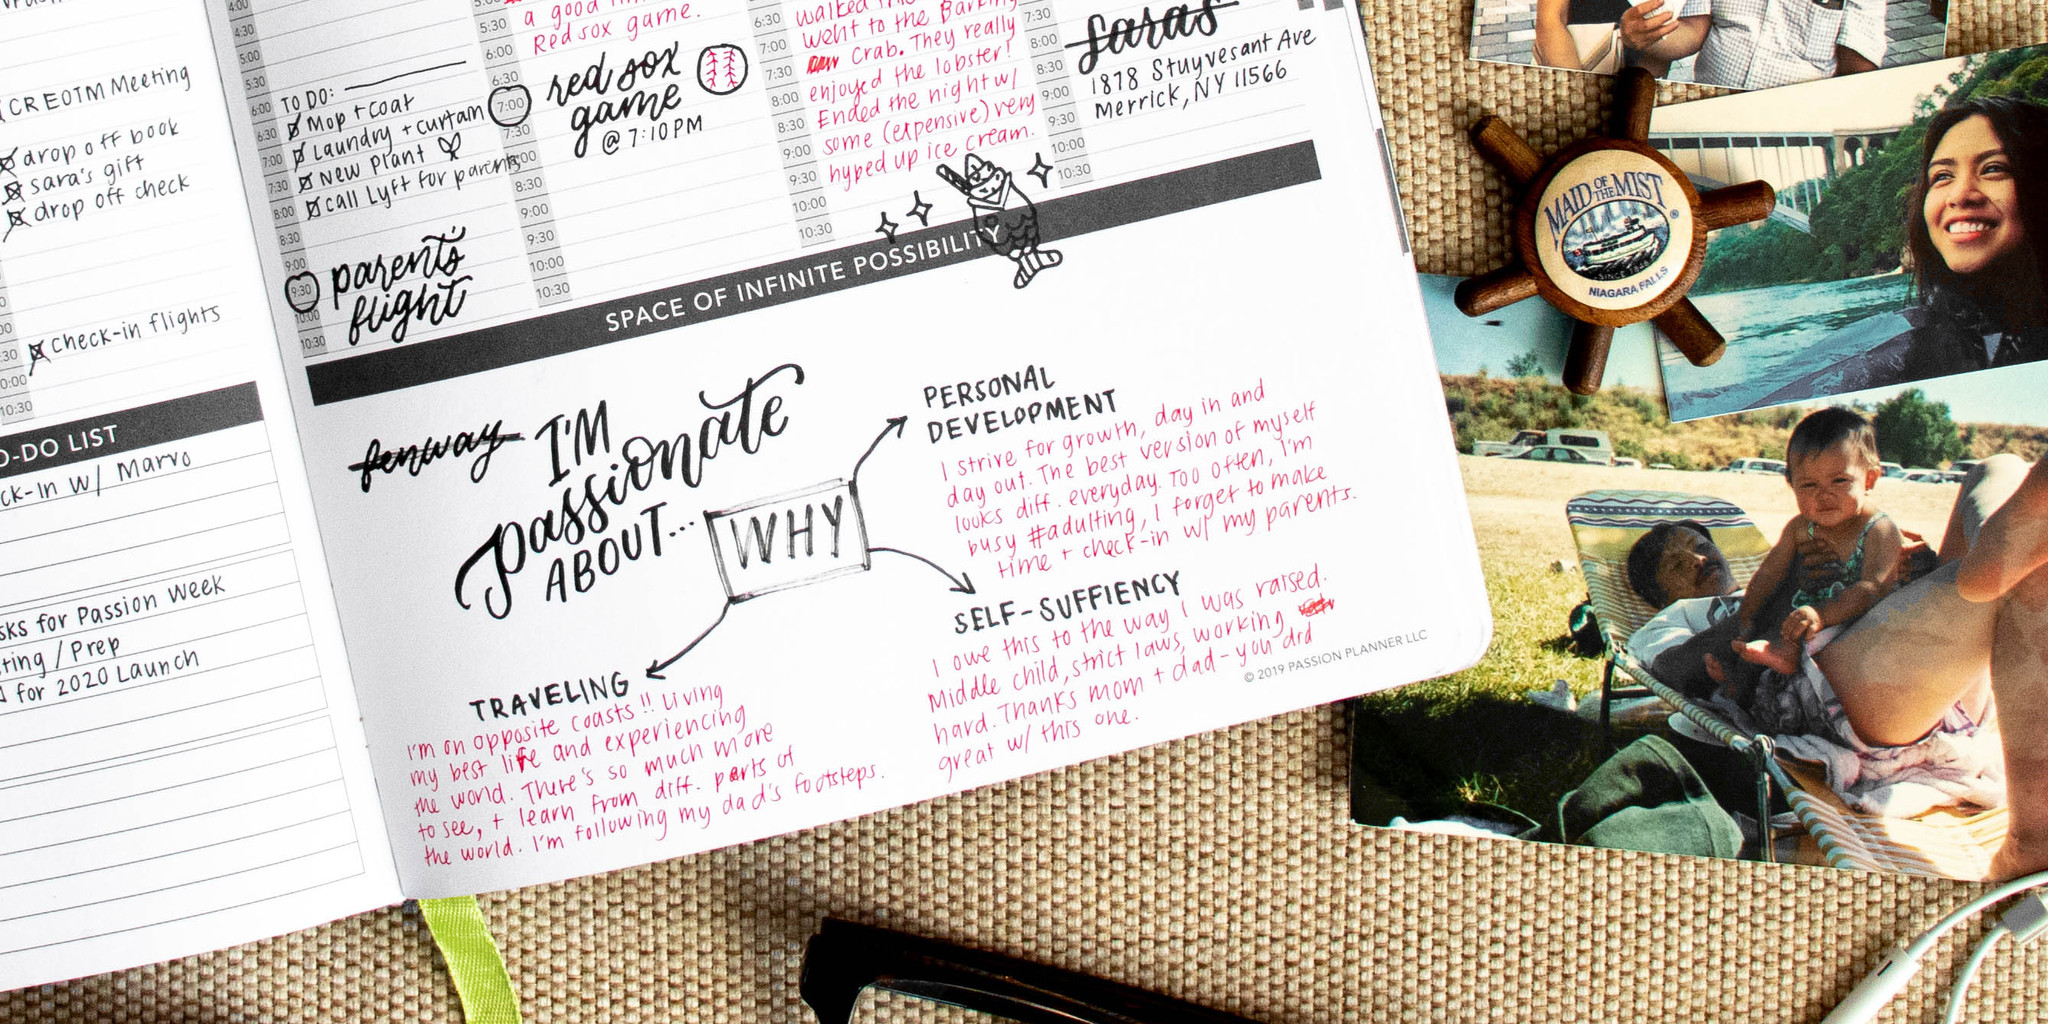 4:00
4:30
5:00
5:30
6:00
6:30
7:00
7:30
8:00
8:30
9:00
9:30
10:00
10:30
CREOTM Meeting
drop off book
sara's gift
drop off check
check-in flights
10:30
O-DO LIST
ck-in w/ Marvo
sks for Passion Week
ting / Prep
for 2020 Launch
TO DO:
Mop + coat
Laundry + curtain
New Plant
call Lyft for parents
parents'
flight
5:00
5:30
6:00
6:30
7:00
7:30
8:00
8:30
9:00
9:30
10:00
10:30
a good
Red sox game.
red sox
game
@ 7:10 PM
6:30
7:00
7:30
8:00
8:30
9:00
9:30
10:00
10:30
walked
went to the Barking
Crab. They really
enjoyed the lobster!
Ended the night w/
some (expensive) very
hyped up ice cream.
7:30
8:00
8:30
9:00
10:00
10:30
saras
1878 Stuyvesant Ave
Merrick, NY 11566
SPACE OF INFINITE POSSIBILITY
fenway
I'M
passionate
ABOUT...
WHY
PERSONAL
DEVELOPMENT
I strive for growth, day in and
day out. The best version of myself
looks diff. everyday. Too often, I'm
busy #adulting, I forget to make
time + check-in w/ my parents.
SELF-SUFFIENCY
I owe this to the way I was raised.
Middle child, strict laws, working
hard. Thanks mom + dad - you did
great w/ this one.
TRAVELING
I'm on opposite coasts!! Living
my best life and experiencing
the world. There's so much more
to see, + learn from diff. parts of
the world. I'm following my dad's footsteps.
© 2019 PASSION PLANNER LLC
MAID OF THE MIST
SINCE 1846
NIAGARA FALLS